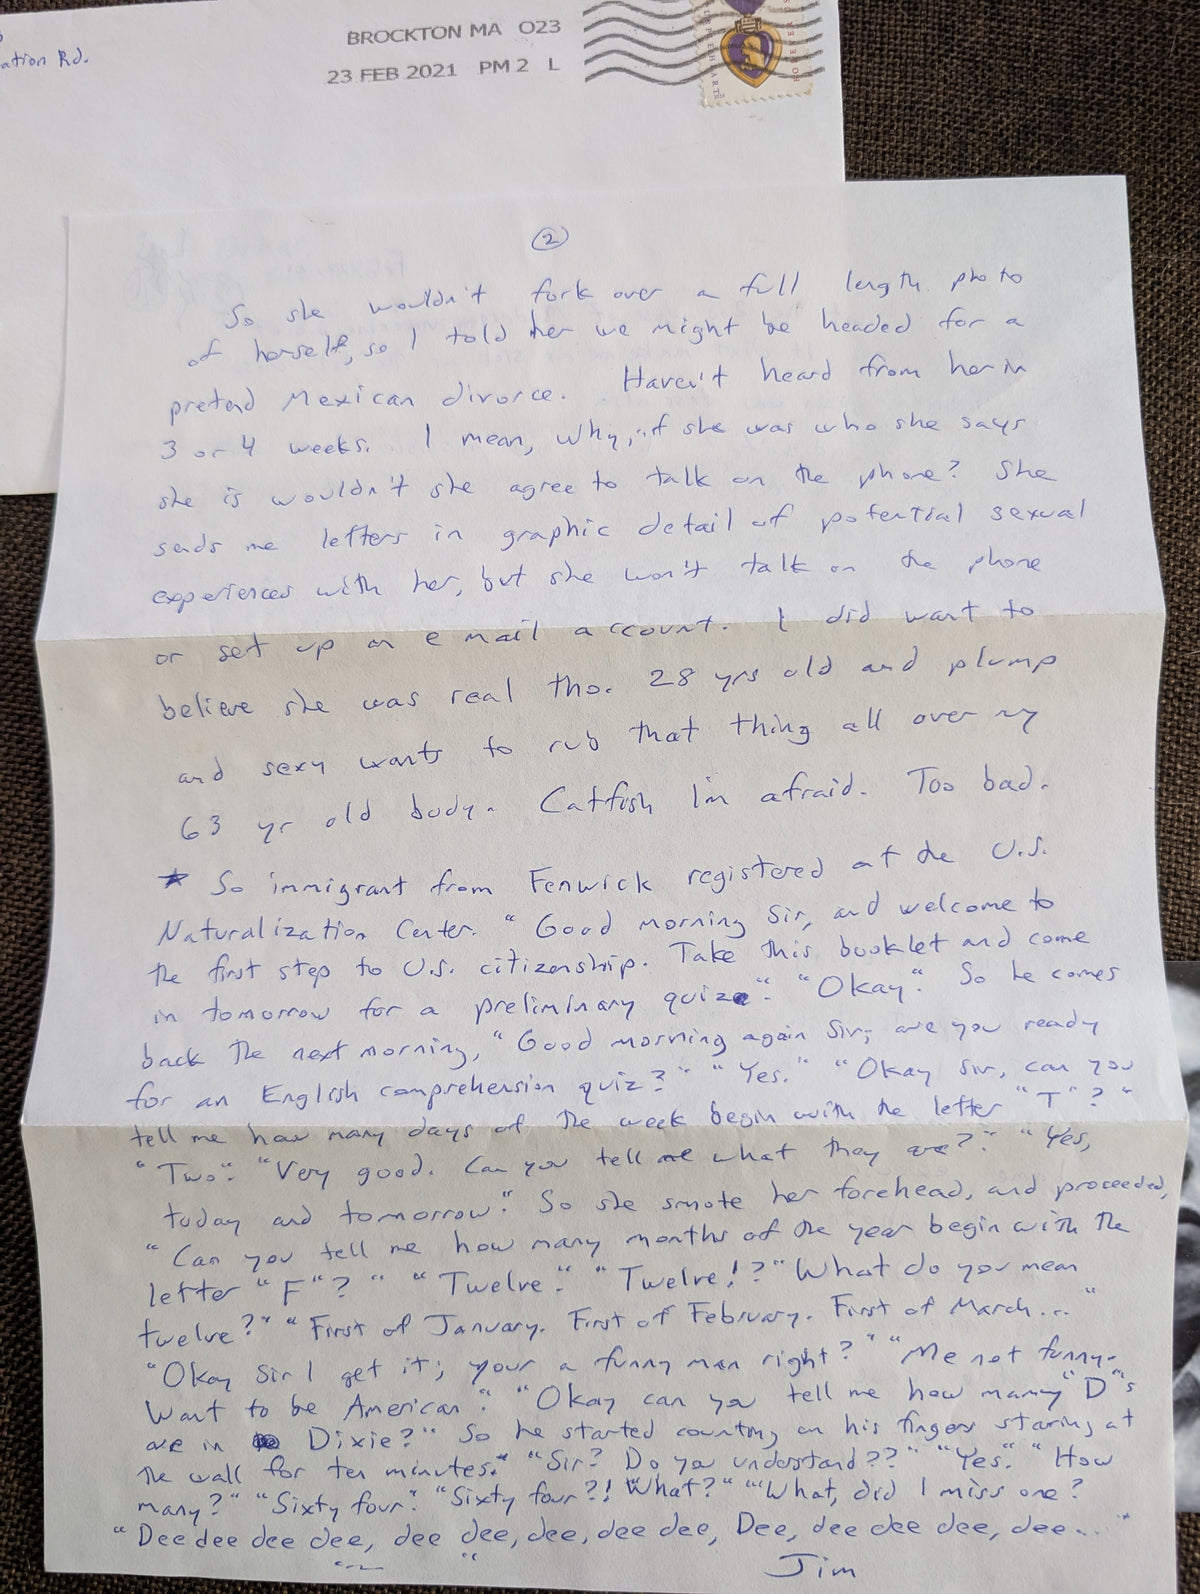 ation Rd.
BROCKTON MA 023
23 FEB 2021 PM 2 L
PURPLE HEART
2
So she wouldn't fork over a full length photo
of herself, so I told her we might be headed for a
pretend Mexican divorce. Haven't heard from her in
3 or 4 weeks. I mean, why, if she was who she says
she is wouldn't she agree to talk on the phone? She
sends me letters in graphic detail of potential sexual
experiences with her, but she won't talk on the phone
or set up an email account. I did want to
believe she was real tho. 28 yrs old and plump
and sexy wants to rub that thing all over my
63 yr old body. Catfish I'm afraid. Too bad.
* So immigrant from Fenwick registered at the U.S.
Naturalization Center. "Good morning Sir, and welcome to
the first step to U.S. citizenship. Take this booklet and come
in tomorrow for a preliminary quiz". "Okay". So he comes
back the next morning, "Good morning again Sir; are you ready
for an English comprehension quiz?" "Yes." "Okay sir, can you
tell me how many days of the week begin with the letter "T"?"
"Two". "Very good. Can you tell me what they are?" "Yes,
today and tomorrow". So she smote her forehead, and proceeded,
"Can you tell me how many months of the year begin with the
letter "F"?" "Twelve". "Twelve!?" What do you mean
twelve?" "First of January. First of February. First of March..."
"Okay Sir I get it; your a funny man right?" "Me not funny.
Want to be American". "Okay can you tell me how many "D"s
are in Dixie?" So he started counting on his fingers staring at
the wall for ten minutes. "Sir? Do you understand??" "Yes". "How
many?" "Sixty four". "Sixty four?! What?" "What, did I miss one?
"Dee dee dee dee, dee dee, dee, dee dee, Dee, dee dee dee, dee..."
Jim